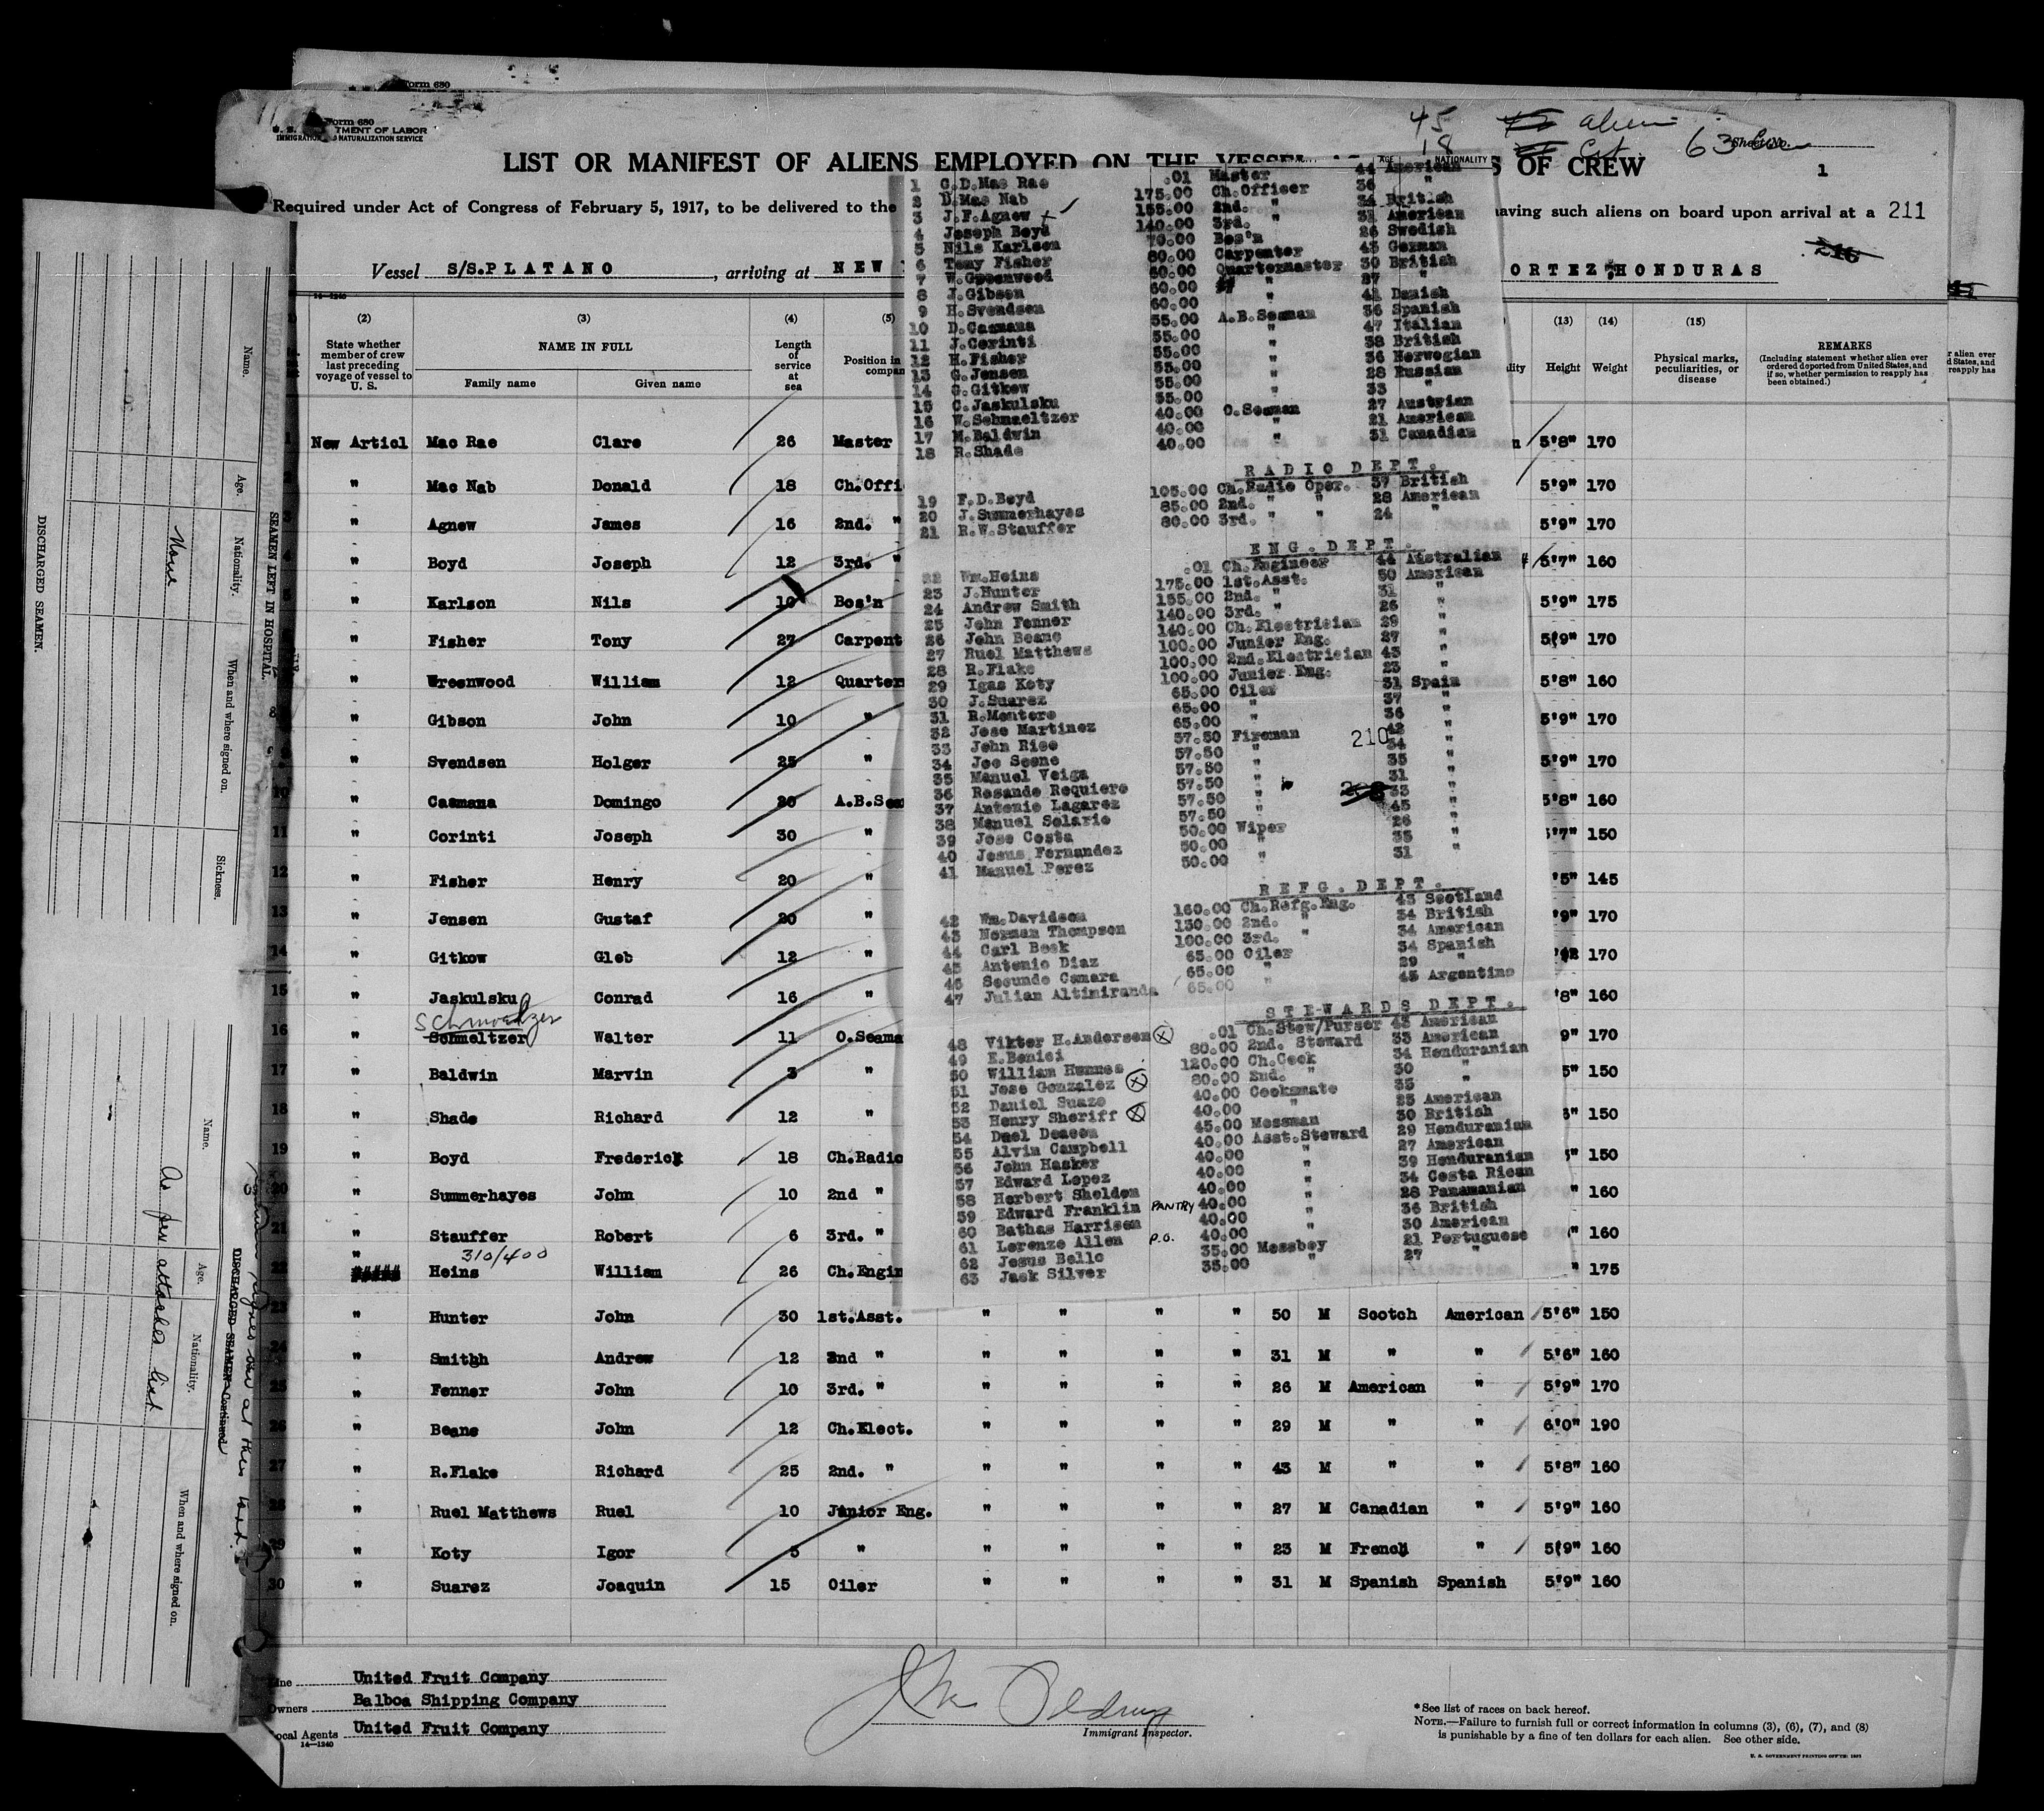 Form 680
Form 680
TMENT OF LABOR
IMMIGRATION NATURALIZATION SERVICE
45 alien
18 63
Sheet No.
LIST OR MANIFEST OF ALIENS EMPLOYED ON THE VESSEL OF CREW
1
Required under Act of Congress of February 5, 1917, to be delivered to the
having such aliens on board upon arrival at a 211
Vessel S/S.PLATANO, arriving at NEW
ORTEZ,HONDURAS
14—1240
(2) (3) (4) (5) (13) (14) (15)
State whether member of crew last preceding voyage of vessel to U. S.
NAME IN FULL
Family name Given name
Length of service at sea
Position in
Height Weight
Physical marks, peculiarities, or disease
REMARKS
(Including statement whether alien ever ordered deported from United States, and if so, whether permission to reapply has been obtained.)
1 New Articl Mac Rae Clare 26 Master 5'8" 170
2 " Mac Nab Donald 18 Ch.Offi 5'9" 170
3 " Agnew James 16 2nd. " 5'9" 170
4 " Boyd Joseph 12 3rd. " 5'7" 160
5 " Karlson Nils 10 Bos'n 5'9" 175
" Fisher Tony 27 Carpent 5'9" 170
" Greenwood William 12 Quarter 5'8" 160
8 " Gibson John 10 " 5'9" 170
" Svendsen Holger 25 " 5'9" 170
10 " Casmana Domingo 20 A.B.Sea 5'8" 160
11 " Corinti Joseph 30 " '7" 150
12 " Fisher Henry 20 " '5" 145
13 " Jensen Gustaf 20 " '9" 170
14 " Gitkow Gleb 12 " 170
15 " Jaskulsku Conrad 16 " '8" 160
Schmoelzer
16 " Schmeltzer Walter 11 O.Seama 9" 170
17 " Baldwin Marvin 3 " 5" 150
18 " Shade Richard 12 " " 150
19 " Boyd Frederick 18 Ch.Radio " 150
20 " Summerhayes John 10 2nd " " 160
21 " Stauffer Robert 6 3rd. " " 160
310/400
22 " Heins William 26 Ch.Engin " 175
23 " Hunter John 30 1st.Asst. " " " " 50 M Scotch American 5'6" 150
24 " Smithh Andrew 12 2nd " " " " " 31 M " " 5'6" 160
25 " Fenner John 10 3rd. " " " " " 26 M American " 5'9" 170
26 " Beane John 12 Ch.Elect. " " " " 29 M " " 6'0" 190
27 " R.Flake Richard 25 2nd. " " " " " 43 M " " 5'8" 160
28 " Ruel Matthews Ruel 10 Junior Eng. " " " " 27 M Canadian " 5'9" 160
29 " Koty Igor 5 " " " " " 23 M French " 5'9" 160
30 " Suarez Joaquin 15 Oiler " " " " 31 M Spanish Spanish 5'9" 160
AGE NATIONALITY
1 C.D.Mac Rae .01 Master 44 American
2 D.Mac Nab 175.00 Ch.Officer 36 "
3 J.F.Agnew 155.00 2nd. " 34 British
4 Joseph Boyd 140.00 3rd. " 31 American
5 Nils Karlson 70.00 Bos'n 26 Swedish
6 Tony Fisher 80.00 Carpenter 45 German
7 W.Greenwood 60.00 Quartermaster 30 British
8 J.Gibson 60.00 " 27 "
9 H.Svendsen 60.00 " 41 Danish
10 D.Casmana 55.00 A.B.Seaman 36 Spanish
11 J.Corinti 55.00 " 47 Italian
12 H.Fisher 55.00 " 38 British
13 G.Jensen 55.00 " 36 Norwegian
14 G.Gitkow 55.00 " 28 Russian
15 C.Jaskulsku 55.00 " 33 "
16 W.Schmaeltzer 40.00 O.Seaman 27 Austrian
17 M.Baldwin 40.00 " 21 American
18 R.Shade 40.00 " 31 Canadian
RADIO DEPT.
19 F.D.Boyd 105.00 Ch.Radio Oper. 37 British
20 J.Summerhayes 85.00 2nd. " " 28 American
21 R.W.Stauffer 80.00 3rd. " " 24 "
ENG.DEPT.
22 Wm.Heins .01 Ch.Engineer 44 Australian
23 J.Hunter 175.00 1st.Asst. 50 American
24 Andrew Smith 155.00 2nd. " 31 "
25 John Fenner 140.00 3rd. " 26 "
26 John Beane 140.00 Ch.Electrician 29 "
27 Ruel Matthews 100.00 Junior Eng. 27 "
28 R.Flake 100.00 2nd.Electrician 43 "
29 Igas Koty 100.00 Junior Eng. 23 "
30 J.Suarez 65.00 Oiler 31 Spain
31 R.Montero 65.00 " 37 "
32 Jose Martinez 65.00 " 36 "
33 John Rice 57.50 Fireman 42 "
210
34 Joe Seone 57.50 " 34 "
35 Manuel Veiga 57.50 " 35 "
36 Rosando Requiero 57.50 " 31 "
37 Antonio Lagarez 57.50 " 33 "
38 Manuel Solario 57.50 " 45 "
39 Jose Costa 50.00 Wiper 26 "
40 Jesus Fernandez 50.00 " 35 "
41 Manuel Perez 50.00 " 31 "
REFG.DEPT.
42 Wm.Davidson 160.00 Ch.Refg.Eng. 43 Scotland
43 Norman Thompson 130.00 2nd. " 34 British
44 Carl Beek 100.00 3rd. " 34 American
45 Antonio Diaz 65.00 Oiler 34 Spanish
46 Secundo Camara 65.00 " 29 "
47 Julian Altimiranda 65.00 " 45 Argentine
STEWARDS DEPT.
48 Vikter H.Andersen .01 Ch.Stew/Purser 43 American
49 E.Benici 80.00 2nd. Steward 33 American
50 William Hunnes 120.00 Ch.Cook 34 Honduranian
51 Jose Gonzalez 80.00 2nd. " 30 "
52 Daniel Suazo 40.00 Cooksmate 35 "
53 Henry Sheriff 40.00 " 25 American
54 Duel Deacon 45.00 Messman 30 British
55 Alvin Campbell 40.00 Asst.Steward 29 Honduranian
56 John Hasker 40.00 " 27 American
57 Edward Lopez 40.00 " 39 Honduranian
58 Herbert Sheldon 40.00 " 34 Costa Rican
59 Edward Franklin PANTRY 40.00 " 28 Panamanian
60 Bathas Harrison 40.00 " 36 British
61 Lorenzo Allen P.O. 40.00 " 30 American
62 Jesus Bello 35.00 Messboy 21 Portuguese
63 Jack Silver 35.00 " 27 "
Line United Fruit Company
Owners Balboa Shipping Company
Local Agents United Fruit Company
14—1240
Immigrant Inspector.
*See list of races on back hereof.
NOTE.—Failure to furnish full or correct information in columns (3), (6), (7), and (8)
is punishable by a fine of ten dollars for each alien. See other side.
DISCHARGED SEAMEN
Name. Age. Nationality. When and where signed on. Sickness.
None
SEAMEN LEFT IN HOSPITAL
DISCHARGED SEAMEN—Continued
Name. Age. Nationality. When and where signed on.
As per attached list